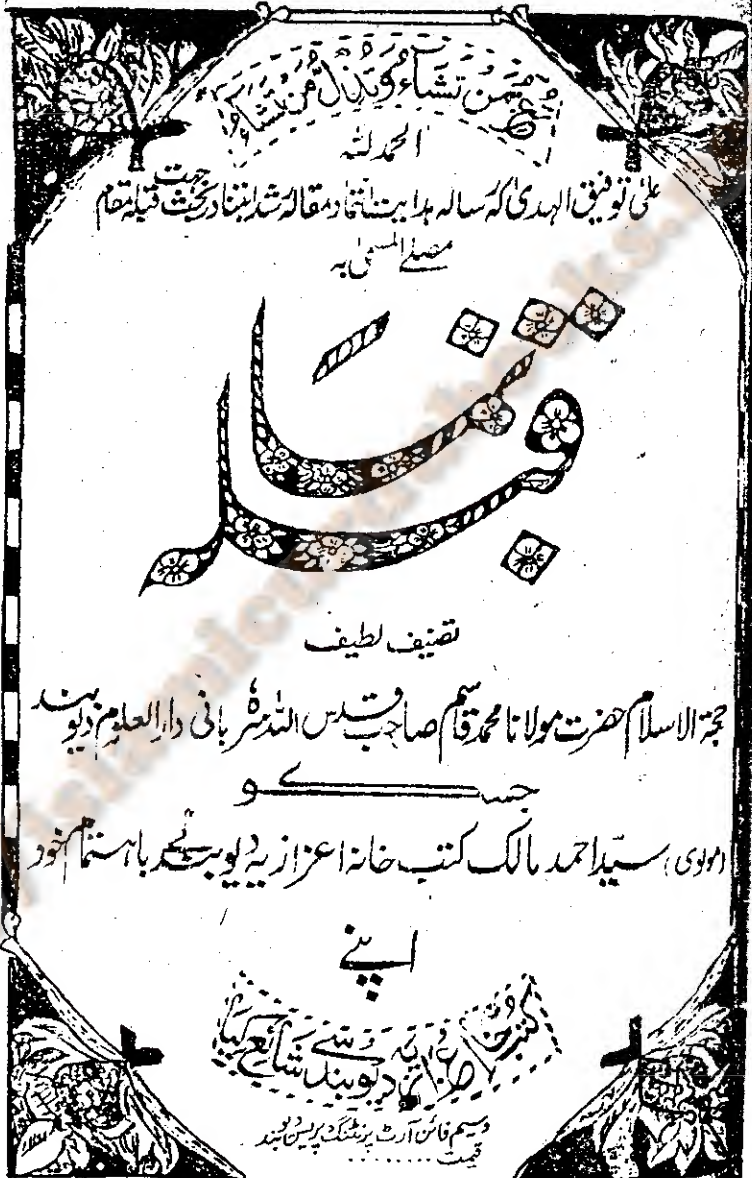 تعز من تشاء و تذل من تشاء
الحمد للہ
علیٰ توفیق الہدیٰ کہ رسالہ ہدایت انتما و مقالہ رشد ابتنا در بحث جہت قبلہ مقام
مصلے المسمیٰ بہ
قبلہ نما
تصنیف لطیف
حجۃ الاسلام حضرت مولانا محمد قاسم صاحب قدس اللہ سرہ بانی دار العلوم دیوبند
جس کو
(مولوی) سید احمد مالک کتب خانہ اعزازیہ دیوبند نے باہتمام خود
اپنے
کتب خانہ اعزازیہ دیوبند سے شائع کیا
وسیم فائن آرٹ پرنٹنگ پریس دیوبند
قیمت ........
islamicurdubooks.